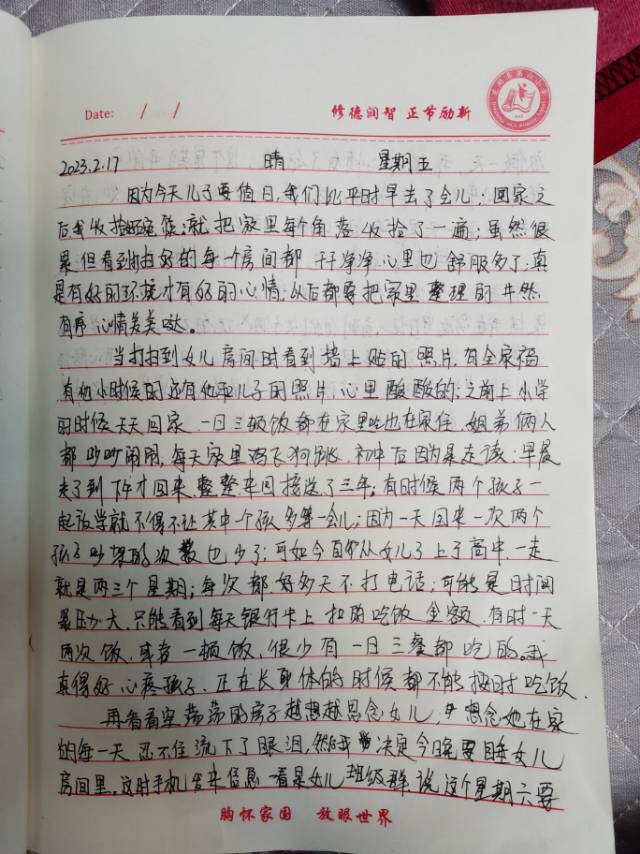 Date: / /
修德润智 正节励新
2023.2.17 晴 星期五
因为今天儿子要值日,我们比平时早去了会儿;回家之
后我收拾 就把家里每个角落收拾了一遍;虽然很
累,但看到打扫好的每一个房间都干干净净心里也舒服多了;真
是有好的环境才有好的心情,以后都要把家里整理的井然
有序心情美美哒。
当打扫到女儿房间时看到墙上贴的照片,有全家福
有他小时候的还有他和儿子的照片,心里酸酸的;之前上小学
的时候天天回家 一日三顿饭都在家里吃也在家住,姐弟俩人
都吵吵闹闹,每天家里鸡飞狗跳,初中后因为是走读;早晨
走了到下午才回来,整整来回接送了三年;有时候两个孩子一
起放学就不得不让其中一个孩多等一会儿;因为一天回来一次两个
孩子吵架的次数也少了;可如今自从女儿上了高中,一走
就是两三个星期;每次都好多天不打电话;可能是时间
压力大,只能看到每天银行卡上扣的吃饭金额,有时一天
两次饭,或者一顿饭,很少有一日三餐都吃的。我
真得好心疼孩子,正在长身体的时候都不能按时吃饭
再看看空荡荡的房子越想越思念女儿,想念她在家
的每一天 忍不住流下了眼泪,然我决定今晚要睡女儿
房间里。这时手机发来信息一看是女儿班级群说这个星期六要
胸怀家国 放眼世界